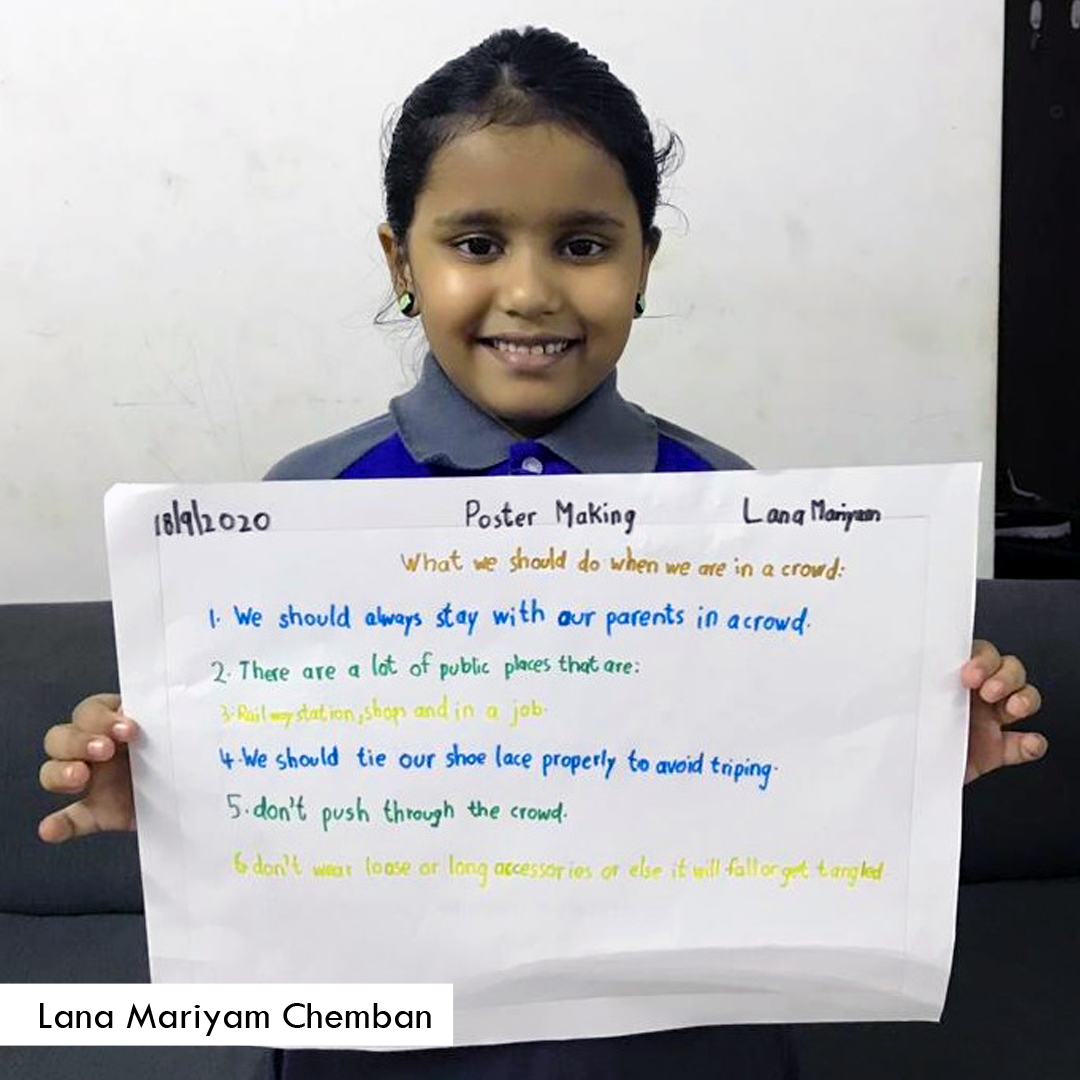 18/9/2020 Poster Making Lana Mariyam
What we should do when we are in a crowd:
1. We should always stay with our parents in a crowd.
2. There are a lot of public places that are:
3. Railway station, shop and in a job.
4. We should tie our shoe lace properly to avoid triping.
5. don't push through the crowd.
6 don't wear loose or long accessories or else it will fall or get tangled
Lana Mariyam Chemban